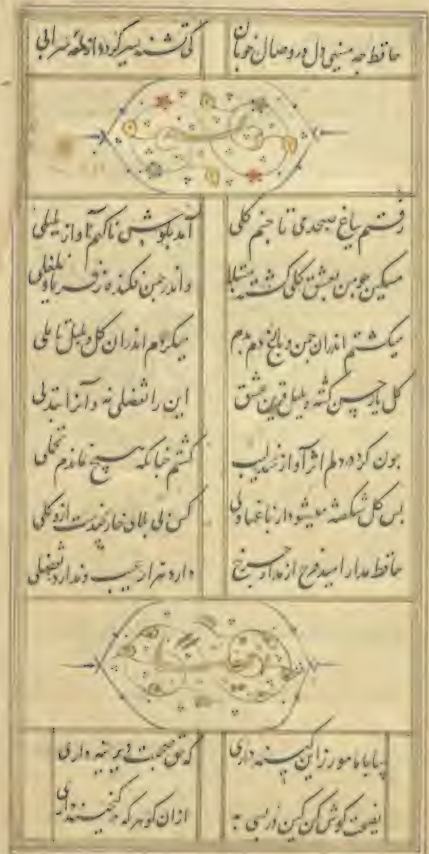 حافظ چه مینهی دل در وصال خوبان کی تشنه سیر گردد از لمعه سرابی
رفتم بباغ صبحدمی تا چنم گلی آمد بکوش ناکهم آواز بلبلی
مسکین چو من بعشق گلی گشته مبتلا واندر چمن فکنده ز فریاد غلغلی
میکشتم اندران چمن و باغ دم بدم میکردم اندران گل و بلبل تأملی
گل یار حسن گشته و بلبل قرین عشق این را تفضلی نه و آنرا تبدلی
چون کرد در دلم اثر آواز عندلیب گشتم چنانکه هیچ نماندم تحملی
بس گل شکفته میشود این باغ را ولی کس بی بلای خار نچیدست ازو گلی
حافظ مدار امید فرح از مدار چرخ دارد هزار عیب و ندارد تفضلی
بیا با ما مورز این کینه داری که حق صحبت دیرینه داری
نصیحت گوش کن کین در بسی به ازان گوهر که در گنجینه داری